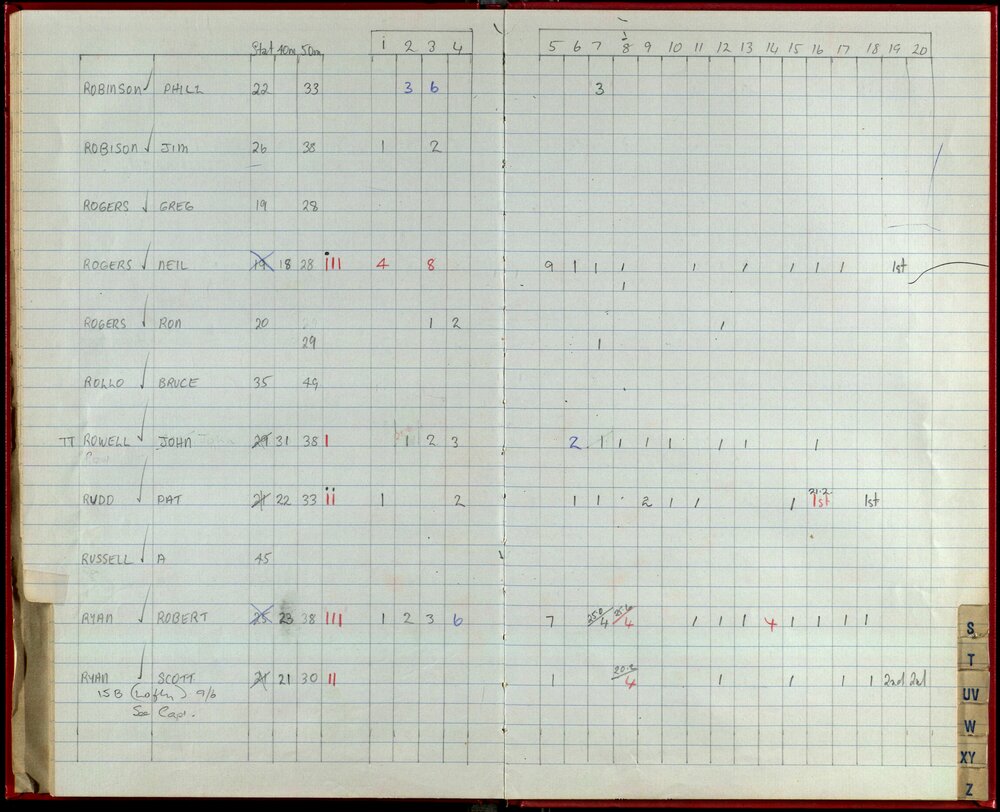 Start 40m 50m 1 2 3 4 5 6 7 8 9 10 11 12 13 14 15 16 17 18 19 20
ROBINSON PHILL 22 33 3 6 3
ROBISON JIM 26 38 1 2
ROGERS GREG 19 28
ROGERS NEIL 19 18 28 III 4 8 9 1 1 1 1 1 1 1 1 1st
1
ROGERS RON 20 1 2 1
29 1
ROLLO BRUCE 35 49
TT ROWELL JOHN 29 31 38 I 1 2 3 2 1 1 1 1 1 1 1
RUDD PAT 21 22 33 II 1 2 1 1 2 1 1 1 21.2 1st 1st
RUSSELL A 45
RYAN ROBERT 25 23 38 III 1 2 3 6 7 4 4 1 1 1 4 1 1 1 1
RYAN SCOTT 21 21 30 II 1 20.2 4 1 1 1 1 2nd 2nd
15B 9/6
See Capt.
S
T
UV
W
XY
Z